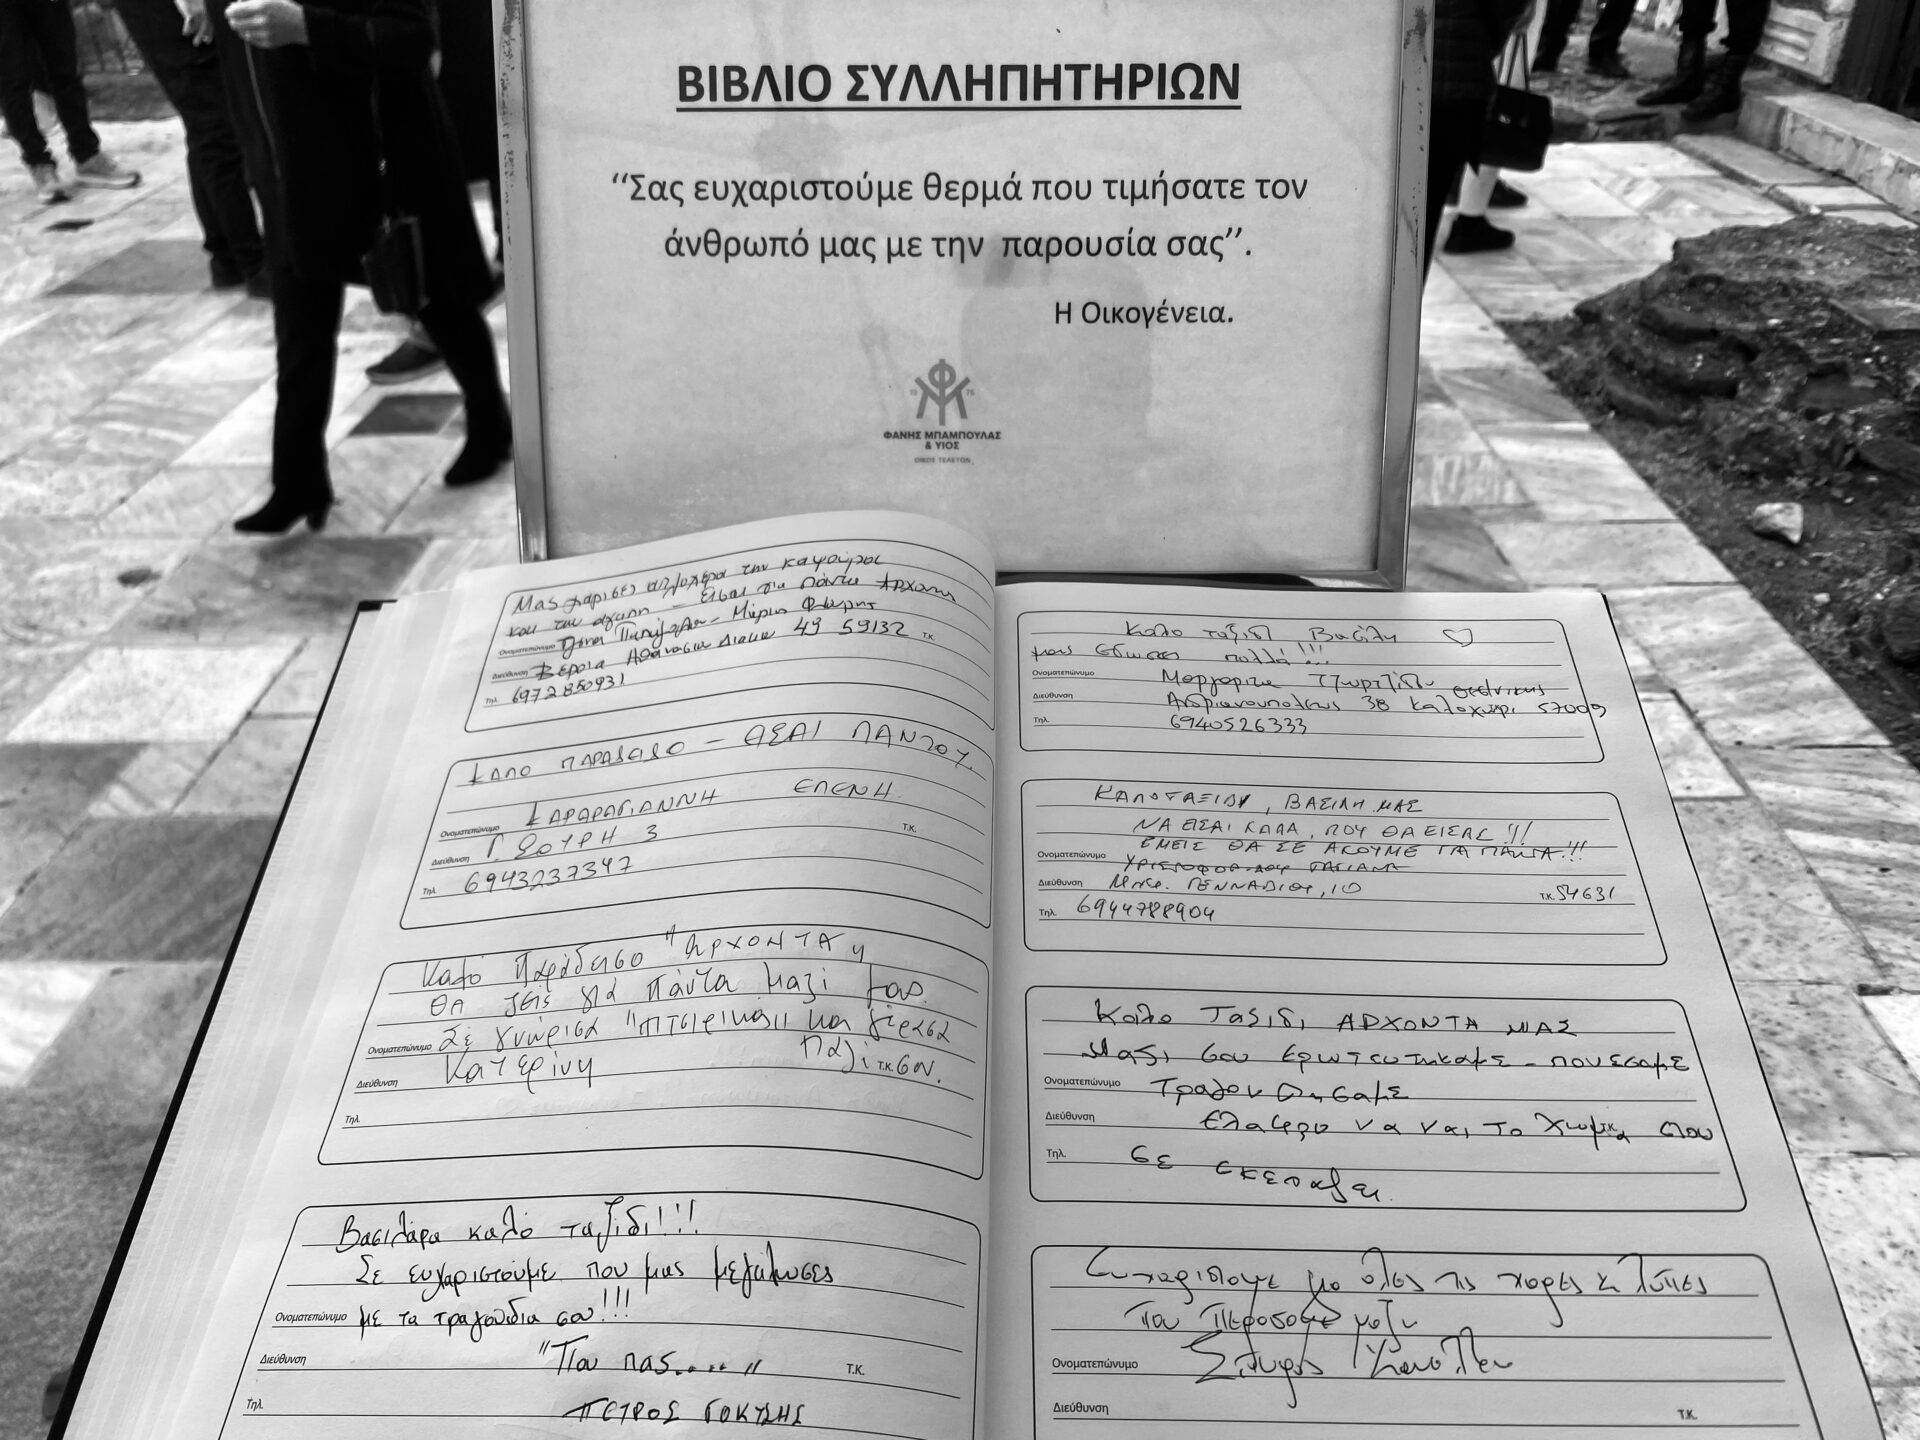 ΒΙΒΛΙΟ ΣΥΛΛΗΠΗΤΗΡΙΩΝ
‘‘Σας ευχαριστούμε θερμά που τιμήσατε τον
άνθρωπό μας με την παρουσία σας’’.
Η Οικογένεια.
19 76
ΦΑΝΗΣ ΜΠΑΜΠΟΥΛΑΣ
& ΥΙΟΣ
ΟΙΚΟΣ ΤΕΛΕΤΩΝ
Μας χάρισες απλόχερα την καψούρα
και την αγάπη – Είσαι για πάντα Άρχοντας
Ονοματεπώνυμο
Διεύθυνση Βέροια Αθανασίου Διάκου 49 59132 Τ.Κ.
Τηλ. 6972850931
ΚΑΛΟ ΠΑΡΑΔΕΙΣΟ – ΕΙΣΑΙ ΠΑΝΤΟΥ
Ονοματεπώνυμο ΚΑΡΑΓΙΑΝΝΗ ΕΛΕΝΗ
Διεύθυνση Γ. ΣΟΥΡΗ 3 Τ.Κ.
Τηλ. 6943237347
Καλό Παράδεισο "ΑΡΧΟΝΤΑ"
Θα ζεις γιά πάντα μαζί μας.
Ονοματεπώνυμο Σε γνώρισα "πιτσιρίκα" και γέρασα
Διεύθυνση Κατερίνη μαζί Τ.Κ. σου.
Τηλ.
Βασιλάρα καλό ταξίδι!!!
Σε ευχαριστούμε που μας μεγάλωσες
Ονοματεπώνυμο με τα τραγούδια σου!!!
Διεύθυνση "Που πας....." Τ.Κ.
Τηλ. ΠΕΤΡΟΣ
Καλο ταξιδι Βασίλη ♡
μας έδωσες πολλά!!!
Ονοματεπώνυμο Μαργαρίτα
Διεύθυνση Ανδριανουπόλεως 38 Καλοχώρι 57009
Τηλ. 6940526333
ΚΑΛΟ ΤΑΞΙΔΙ, ΒΑΣΙΛΗ ΜΑΣ
ΝΑ ΕΙΣΑΙ ΚΑΛΑ, ΠΟΥ ΘΑ ΕΙΣΑΙ!!!
ΕΜΕΙΣ ΘΑ ΣΕ ΑΚΟΥΜΕ ΓΙΑ ΠΑΝΤΑ!!!
Ονοματεπώνυμο ΧΡΙΣΤΟΦΟΡΙΔΟΥ ΤΑΤΙΑΝΑ
Διεύθυνση ΓΕΝΝΑΔΙΟΥ, 10 Τ.Κ. 54631
Τηλ. 6944788904
Καλο Ταξιδι ΑΡΧΟΝΤΑ ΜΑΣ
Μαζι σου ερωτευτηκαμε – πονεσαμε
Ονοματεπώνυμο Τραγουδησαμε
Διεύθυνση Ελαφρυ να ναι το χωμα Τ.Κ. που
Τηλ. σε σκεπαζει
Ευχαριστουμε για όλες τις χαρες & λύπες
Που περάσαμε μαζι
Ονοματεπώνυμο
Διεύθυνση
Τ.Κ.